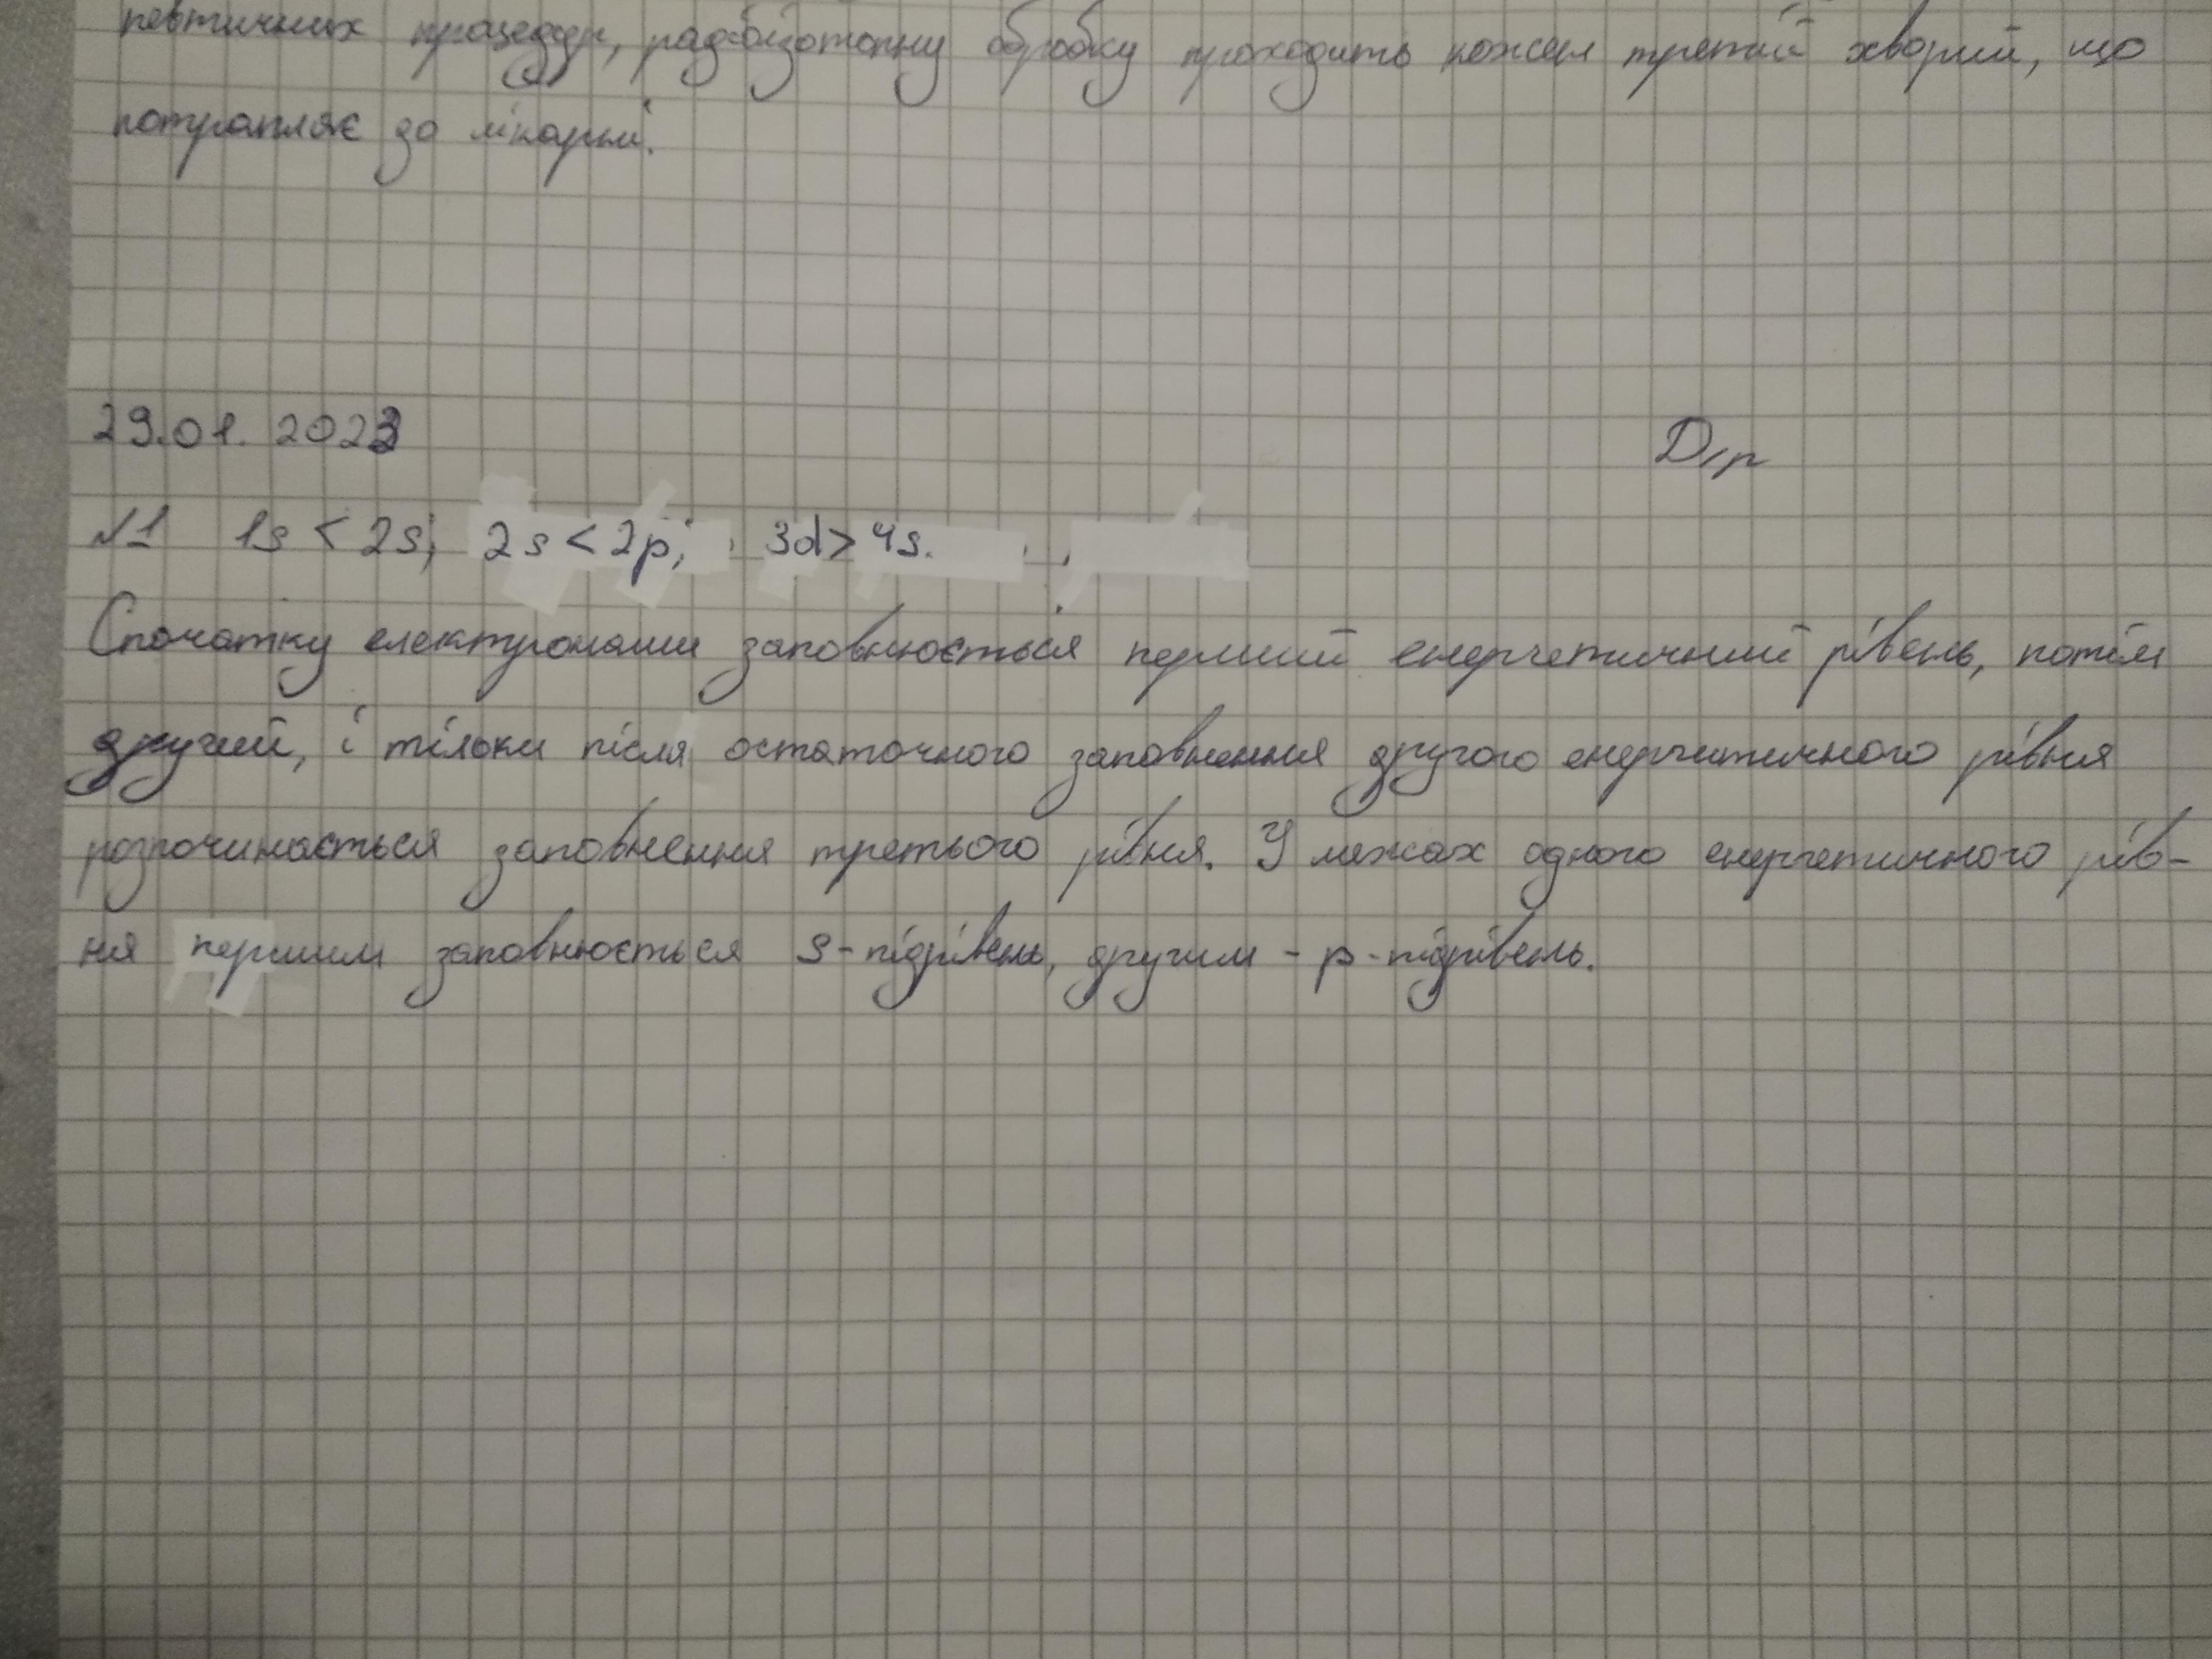 певтичних процедур, радіоізотопну обробку проходить кожен третій хворий, що
потрапляє до лікарні.
29.01.2023 Д/р
№1 1s < 2s; 2s < 2p; 3d > 4s.
Спочатку електронами заповнюється перший енергетичний рівень, потім
другий, і тільки після остаточного заповнення другого енергитичного рівня
розпочинається заповнення третього рівня. У межах одного енергетичного рів-
ня першим заповнюється s-підрівень, другим - p-підрівень.